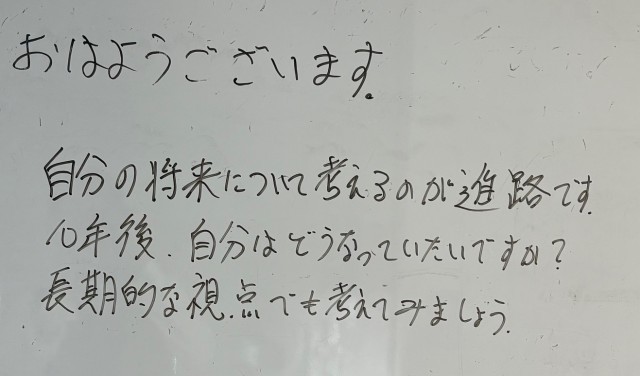 おはようございます.
自分の将来について考えるのが進路です.
10年後.自分はどうなっていたいですか?
長期的な視点でも考えてみましょう.